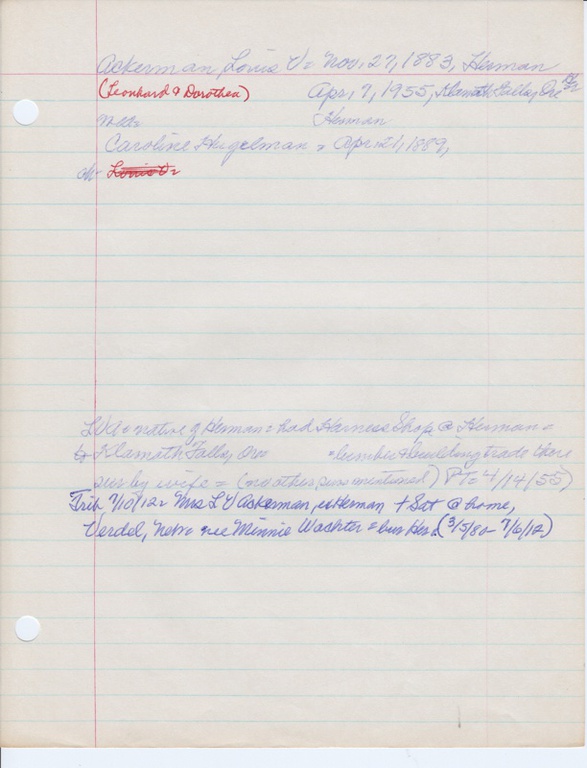 Ackerman, Louis V = Nov, 27, 1883, Herman
(Leonhard & Dorothea) Apr, 7, 1955, Klamath Falls, Ore
Herman
Caroline Hugelman = Apr, 21, 1889,
ch- Louis V =
LVA = native of Herman = had Harness Shop @ Herman =
to Klamath Falls, Ore = lumber & building trade there
surv by wife = (no other surv mentioned) PT = 4/14/55)
Trib 7/10/12 = Mrs L V Ackerman, ex Herman + Sat @ home,
Verdel, Nebr = nee Minnie Wachter = bur Her. (3/5/80 - 7/6/12)